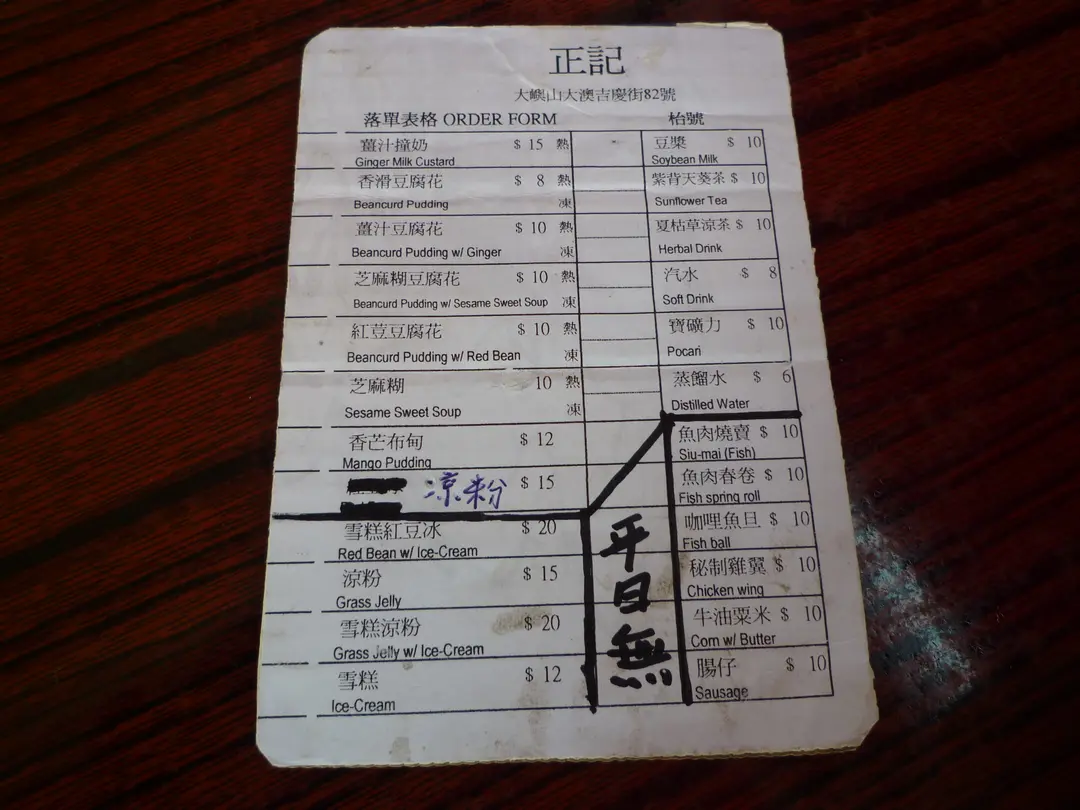 正記
大嶼山大澳吉慶街82號
落單表格 ORDER FORM
枱號
薑汁撞奶 $ 15 熱
Ginger Milk Custard
香滑豆腐花 $ 8 熱
Beancurd Pudding 凍
薑汁豆腐花 $ 10 熱
Beancurd Pudding w/ Ginger 凍
芝麻糊豆腐花 $ 10 熱
Beancurd Pudding w/ Sesame Sweet Soup 凍
紅荳豆腐花 $ 10 熱
Beancurd Pudding w/ Red Bean 凍
芝麻糊 10 熱
Sesame Sweet Soup 凍
香芒布甸 $ 12
Mango Pudding
涼粉 $ 15
雪糕紅豆冰 $ 20
Red Bean w/ Ice-Cream
涼粉 $ 15
Grass Jelly
雪糕涼粉 $ 20
Grass Jelly w/ Ice-Cream
雪糕 $ 12
Ice-Cream
豆漿 $ 10
Soybean Milk
紫背天葵茶 $ 10
Sunflower Tea
夏枯草涼茶 $ 10
Herbal Drink
汽水 $ 8
Soft Drink
寶礦力 $ 10
Pocari
蒸餾水 $ 6
Distilled Water
魚肉燒賣 $ 10
Siu-mai (Fish)
魚肉春卷 $ 10
Fish spring roll
咖哩魚旦 $ 10
Fish ball
秘制雞翼 $ 10
Chicken wing
牛油粟米 $ 10
Corn w/ Butter
腸仔 $ 10
Sausage
平日無